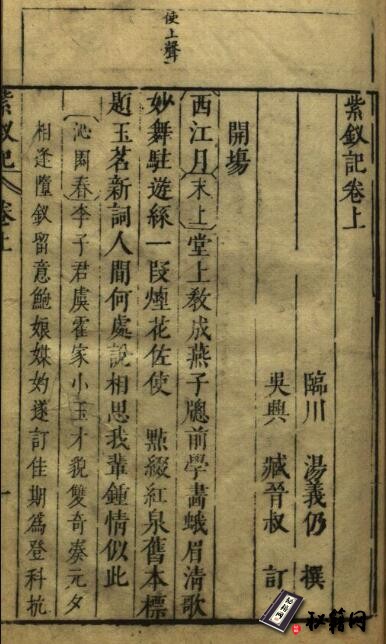 使上聲
紫釵記卷上
臨川 湯義仍 撰
吳興 臧晉叔 訂
開場
西江月末上堂上教成燕子牕前學畫蛾眉清歌
妙舞駐遊絲一段煙花佐使 點綴紅泉舊本標
題玉茗新詞人間何處說相思我輩鍾情似此
沁園春李子君虞霍家小玉才貌雙奇湊元夕
相逢墮釵留意鮑娘媒妁遂訂佳期為登科抗
紫釵記 卷上
一
秘籍网